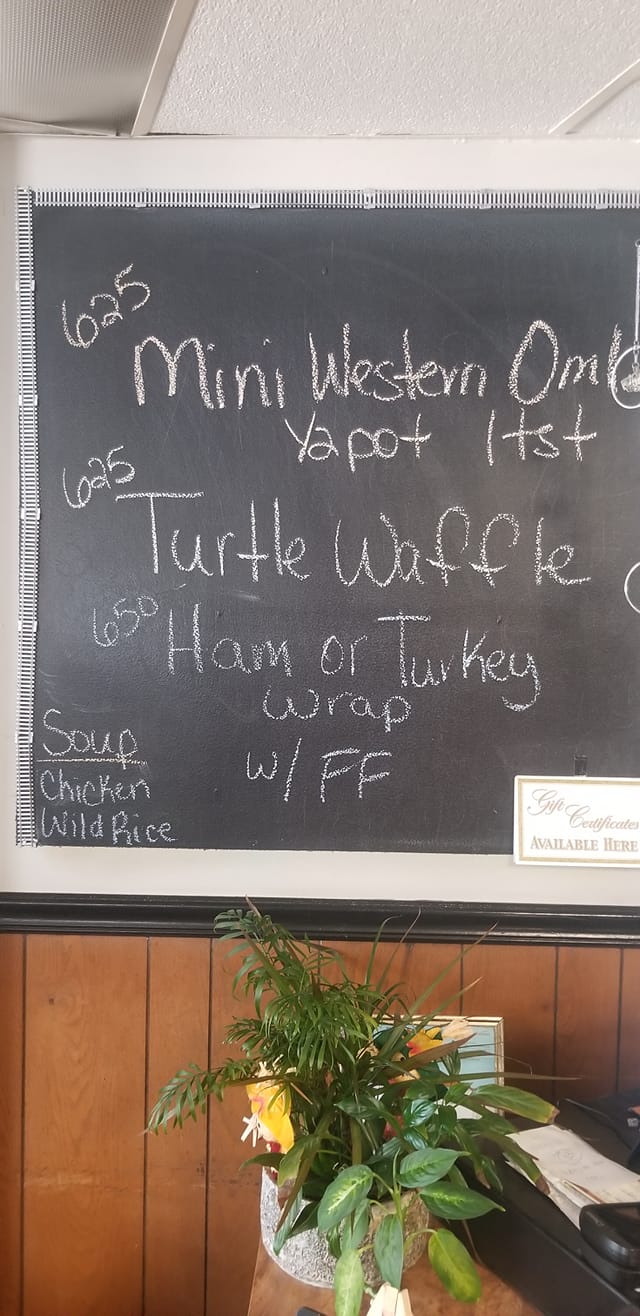 625
Mini Western Oml
Yapot 1tst
625
Turtle Waffle
650
Ham or Turkey
Wrap
W/FF
Soup
Chicken
Wild Rice
Gift
Certificates
AVAILABLE HERE